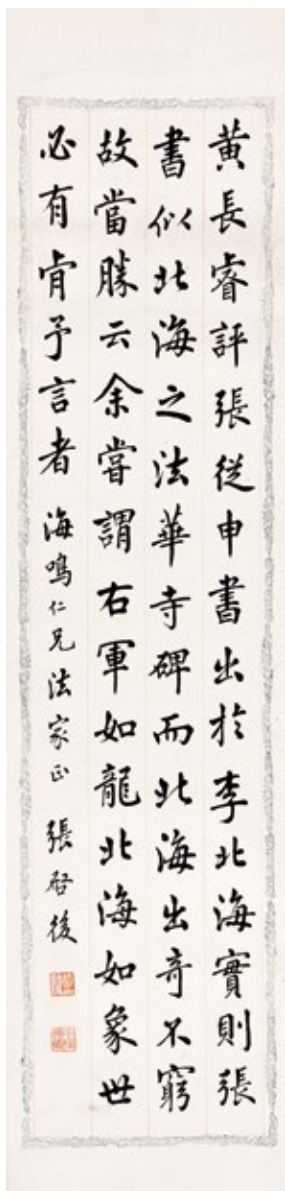 黄長睿評張從申書出於李北海實則張
書似北海之法華寺碑而北海出奇不窮
故當勝云余嘗謂右軍如龍北海如象世
必有肯予言者
海鳴仁兄法家正
張啓後